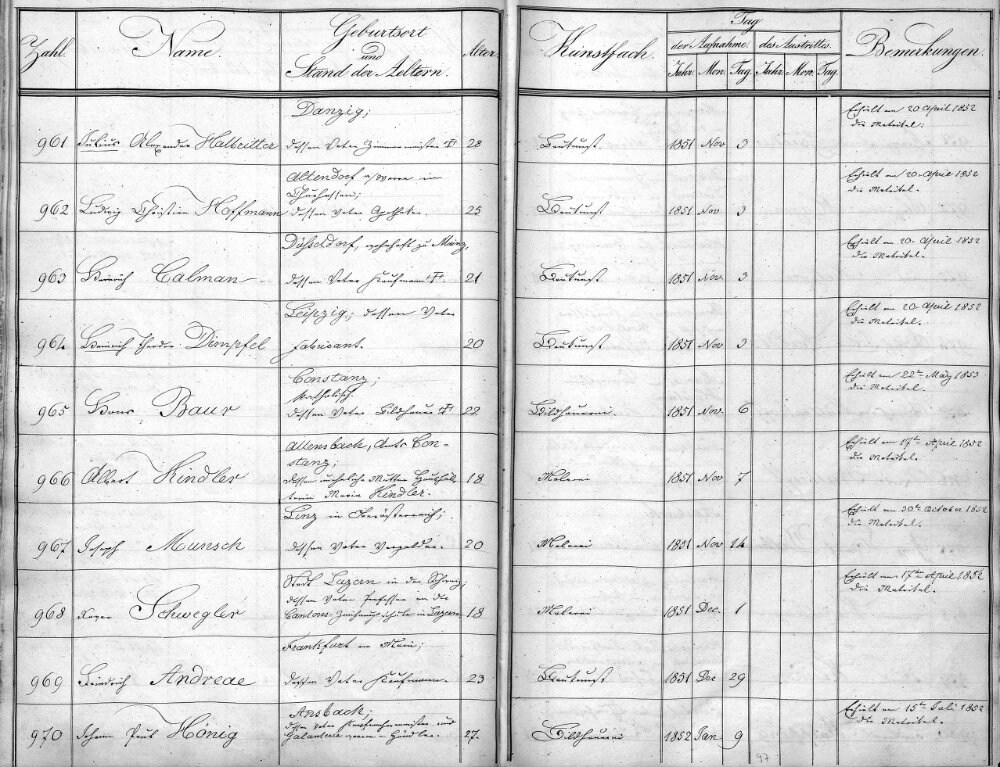 Zahl. Name. Geburtsort und Stand der Aeltern. Alter. Kunstfach. Tag Bemerkungen.
der Aufnahme. des Austrittes.
Jahr. Mon. Tag. Jahr. Mon. Tag.
Danzig; Erhielt am 20 April 1852
die Matrikel.
961 Julius Alexander Halbritter dessen Vater Zimmermeister † 28 Baukunst 1851 Nov 3
Altendorf a/Werra in Erhielt am 20 April 1852
Churhessen; die Matrikel.
962 Ludwig Christian Hoffmann dessen Vater Apotheker. 25 Baukunst 1851 Nov 3
Düsseldorf, wohnhaft zu Mainz; Erhielt am 20 April 1852
die Matrikel.
963 Heinrich Calman dessen Vater Kaufmann † 21 Baukunst 1851 Nov. 3
Leipzig; dessen Vater Erhielt am 20 April 1852
die Matrikel.
964 Heinrich Theodor Dimpfel Fabricant. 20 Baukunst 1851 Nov 3
Constanz; Erhielt am 22ten März 1853
Katholisch. die Matrikel.
965 Hans Baur dessen Vater Bildhauer † 22 Bildhauerei 1851 Nov. 6
Allensbach, Amts Con- Erhielt am 19ten April 1852
stanz; die Matrikel.
966 Albert Kindler dessen uneheliche Mutter Haushäl- 18 Malerei 1851 Nov 7
terin Maria Kindler.
Linz in Oberösterreich; Erhielt am 30ten October 1852
die Matrikel.
967 Joseph Munsch dessen Vater Vergolder. 20 Malerei 1851 Nov 14
Stadt Luzern in der Schweiz; Erhielt am 17ten April 1852
dessen Vater Professor an der die Matrikel.
968 Xaver Schwegler Cantons-Zeichnungsschule in Luzern 18 Malerei 1851 Dec. 1
Frankfurt am Main;
969 Friedrich Andreae dessen Vater Kaufmann. 23 Baukunst 1851 Dec 29
Ansbach; Erhielt am 15ten Juli 1852
dessen Vater und die Matrikel.
970 Johann Paul Hönig Galanteriewaaren-Händler. 27. Bildhauerei 1852 Jan 9
97